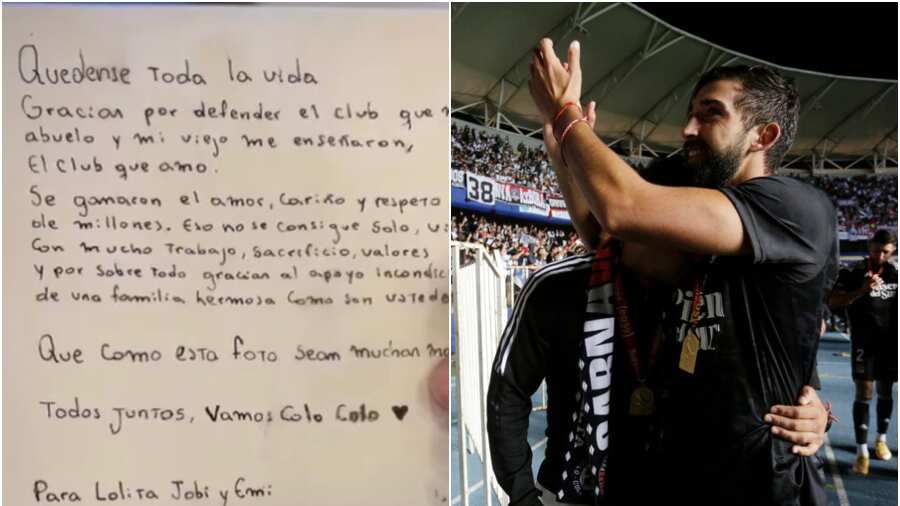 Quedense toda la vida
Gracias por defender el club que
abuelo y mi viejo me enseñaron,
El club que amo.
Se ganaron el amor, cariño y respeto
de millones. Eso no se consigue solo,
Con mucho trabajo, sacrificio, valores
y por sobre todo gracias al apoyo
de una familia hermosa como son
Que como esta foto sean muchas
Todos juntos, Vamos Colo Colo ♥
Para Lolita Jobi y Emi
38
2